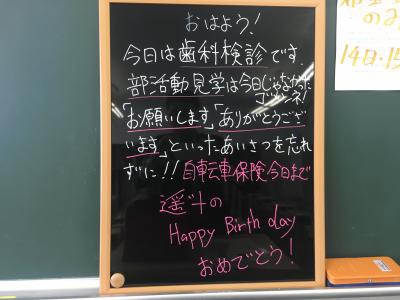 おはよう!
今日は歯科検診です.
部活動見学は今日じゃなかった
ゴメンネ!
「お願いします」「ありがとうござ
います」といったあいさつを忘れ
ずに!! 自転車保険今日まで
遥斗の
Happy Birthday
おめでとう!
14日・15